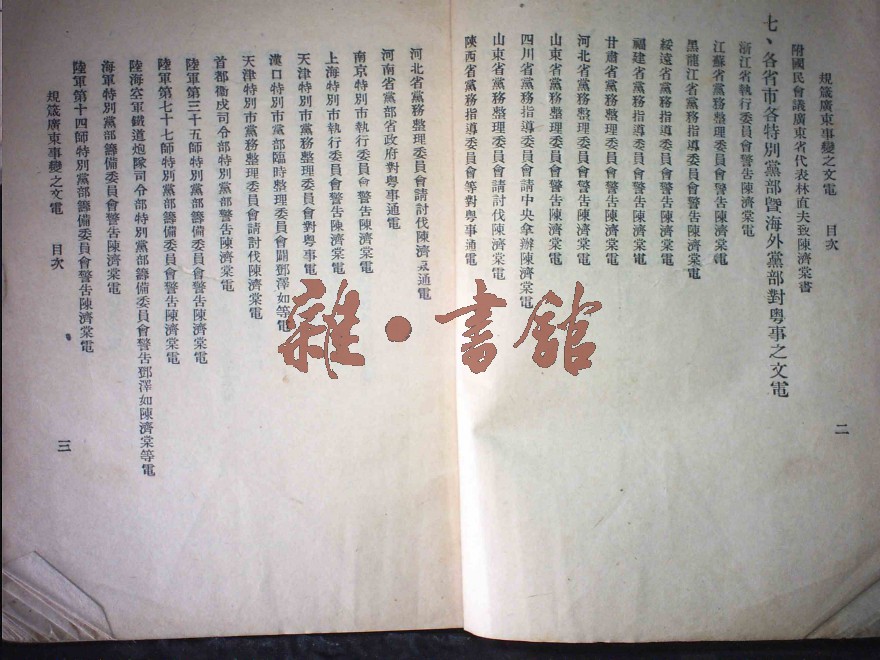 規箴廣東事變之文電　目次
二
附國民會議廣東省代表林直夫致陳濟棠書
七、各省市各特別黨部暨海外黨部對粵事之文電
浙江省執行委員會警告陳濟棠電
江蘇省黨務整理委員會警告陳濟棠電
黑龍江省黨務指導委員會警告陳濟棠電
綏遠省黨務指導委員會警告陳濟棠電
福建省黨務指導委員會警告陳濟棠電
甘肅省黨務指導委員會警告陳濟棠電
河北省黨務整理委員會警告陳濟棠電
山東省黨務整理委員會警告陳濟棠電
四川省黨務指導委員會請中央拿辦陳濟棠電
山東省黨務整理委員會請討伐陳濟棠電
陝西省黨務指導委員會等對粵事通電
河北省黨務整理委員會請討伐陳濟棠通電
河南省黨部省政府對粵事通電
南京特別市執行委員會警告陳濟棠電
上海特別市執行委員會警告陳濟棠電
天津特別市黨務整理委員會對粵事電
漢口特別市黨部臨時整理委員會闢鄧澤如等電
天津特別市黨務整理委員會請討伐陳濟棠電
首都衞戍司令部特別黨部警告陳濟棠電
陸軍第三十五師特別黨部籌備委員會警告陳濟棠電
陸軍第七十七師特別黨部籌備委員會警告陳濟棠電
陸海空軍鐵道炮隊司令部特別黨部籌備委員會警告鄧澤如陳濟棠等電
海軍特別黨部籌備委員會警告陳濟棠電
陸軍第十四師特別黨部籌備委員會警告陳濟棠電
規箴廣東事變之文電　目次
三
雜·書館